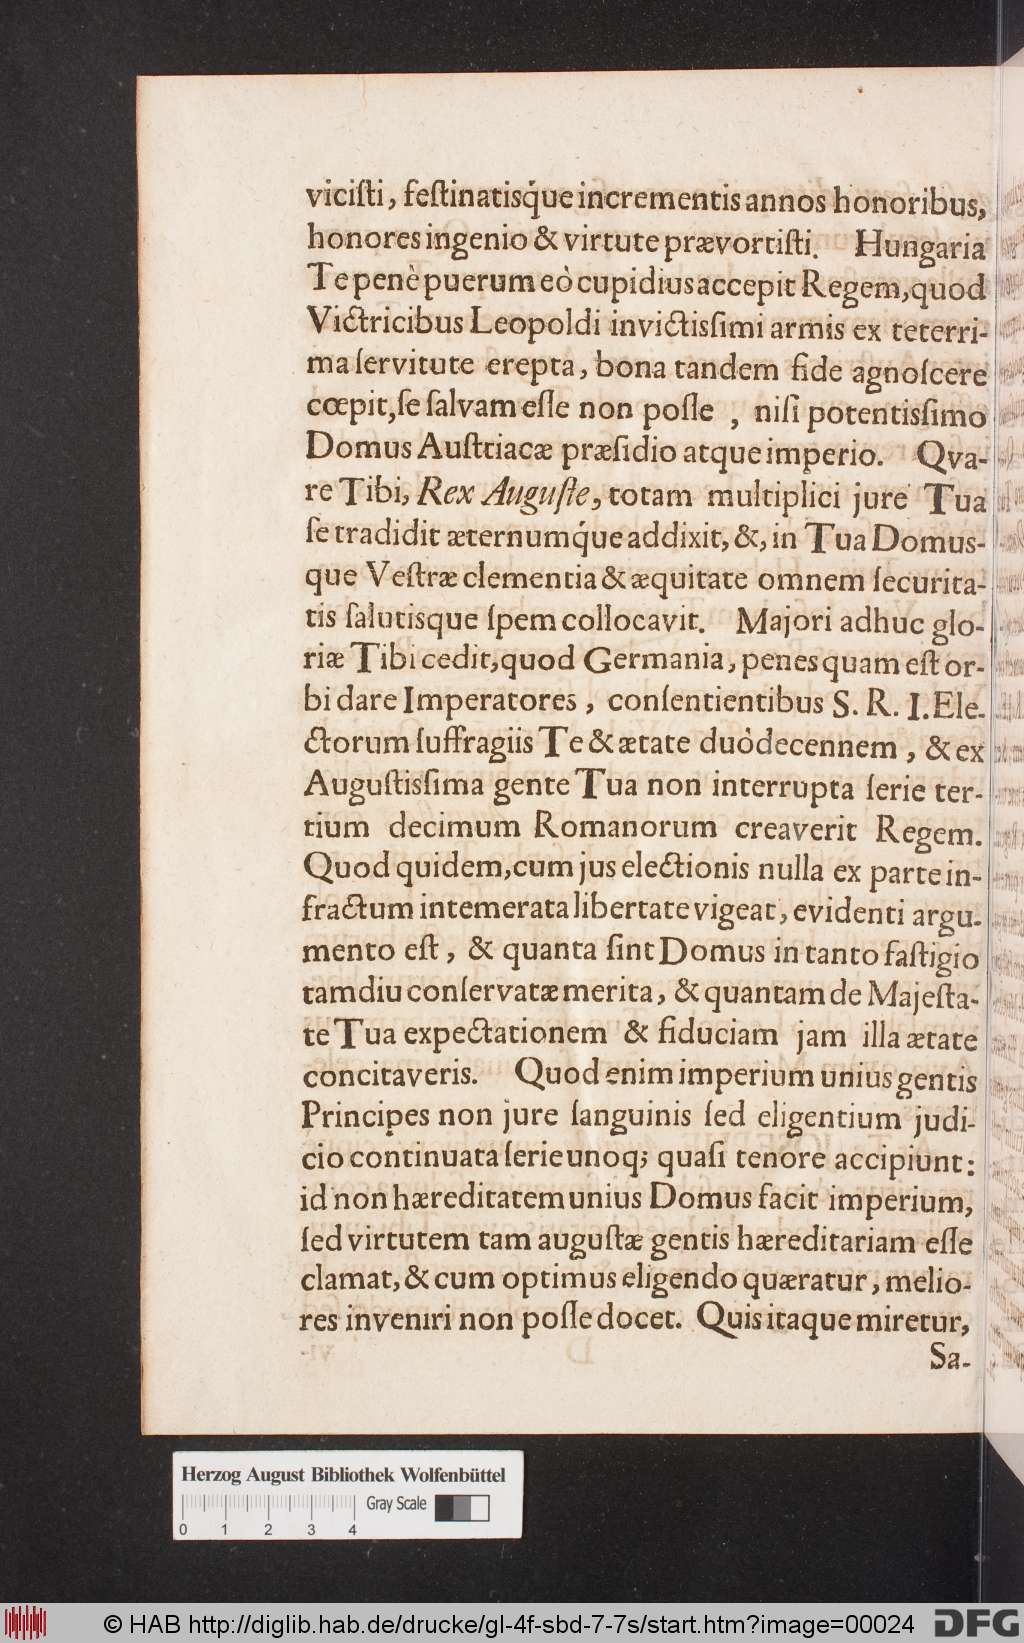 viciſti, feſtinatisq́ue incrementis annos honoribus,
honores ingenio & virtute prævortiſti. Hungaria
Te penè puerum eò cupidius accepit Regem, quod
Victricibus Leopoldi invictiſſimi armis ex teterri-
ma ſervitute erepta, bona tandem fide agnoſcere
cœpit, ſe ſalvam eſſe non poſſe , niſi potentiſſimo
Domus Auſtriacæ præſidio atque imperio. Qva-
re Tibi, Rex Auguſte, totam multiplici jure Tua
ſe tradidit æternumq́ue addixit, &, in Tua Domus-
que Veſtræ clementia & æquitate omnem ſecurita-
tis ſalutisque ſpem collocavit. Majori adhuc glo-
riæ Tibi cedit, quod Germania, penes quam eſt or-
bi dare Imperatores , conſentientibus S. R. I. Ele-
ctorum ſuffragiis Te & ætate duòdecennem , & ex
Auguſtiſſima gente Tua non interrupta ſerie ter-
tium decimum Romanorum creaverit Regem.
Quod quidem, cum jus electionis nulla ex parte in-
fractum intemerata libertate vigeat, evidenti argu-
mento eſt , & quanta ſint Domus in tanto faſtigio
tamdiu conſervatæ merita, & quantam de Majeſta-
te Tua expectationem & fiduciam jam illa ætate
concitaveris. Quod enim imperium unius gentis
Principes non jure ſanguinis ſed eligentium judi-
cio continuata ſerie unoq; quaſi tenore accipiunt:
id non hæreditatem unius Domus facit imperium,
ſed virtutem tam auguſtæ gentis hæreditariam eſſe
clamat, & cum optimus eligendo quæratur, melio-
res inveniri non poſſe docet. Quis itaque miretur,
Sa-
Herzog August Bibliothek Wolfenbüttel
Gray Scale
0 1 2 3 4
© HAB http://diglib.hab.de/drucke/gl-4f-sbd-7-7s/start.htm?image=00024
DFG